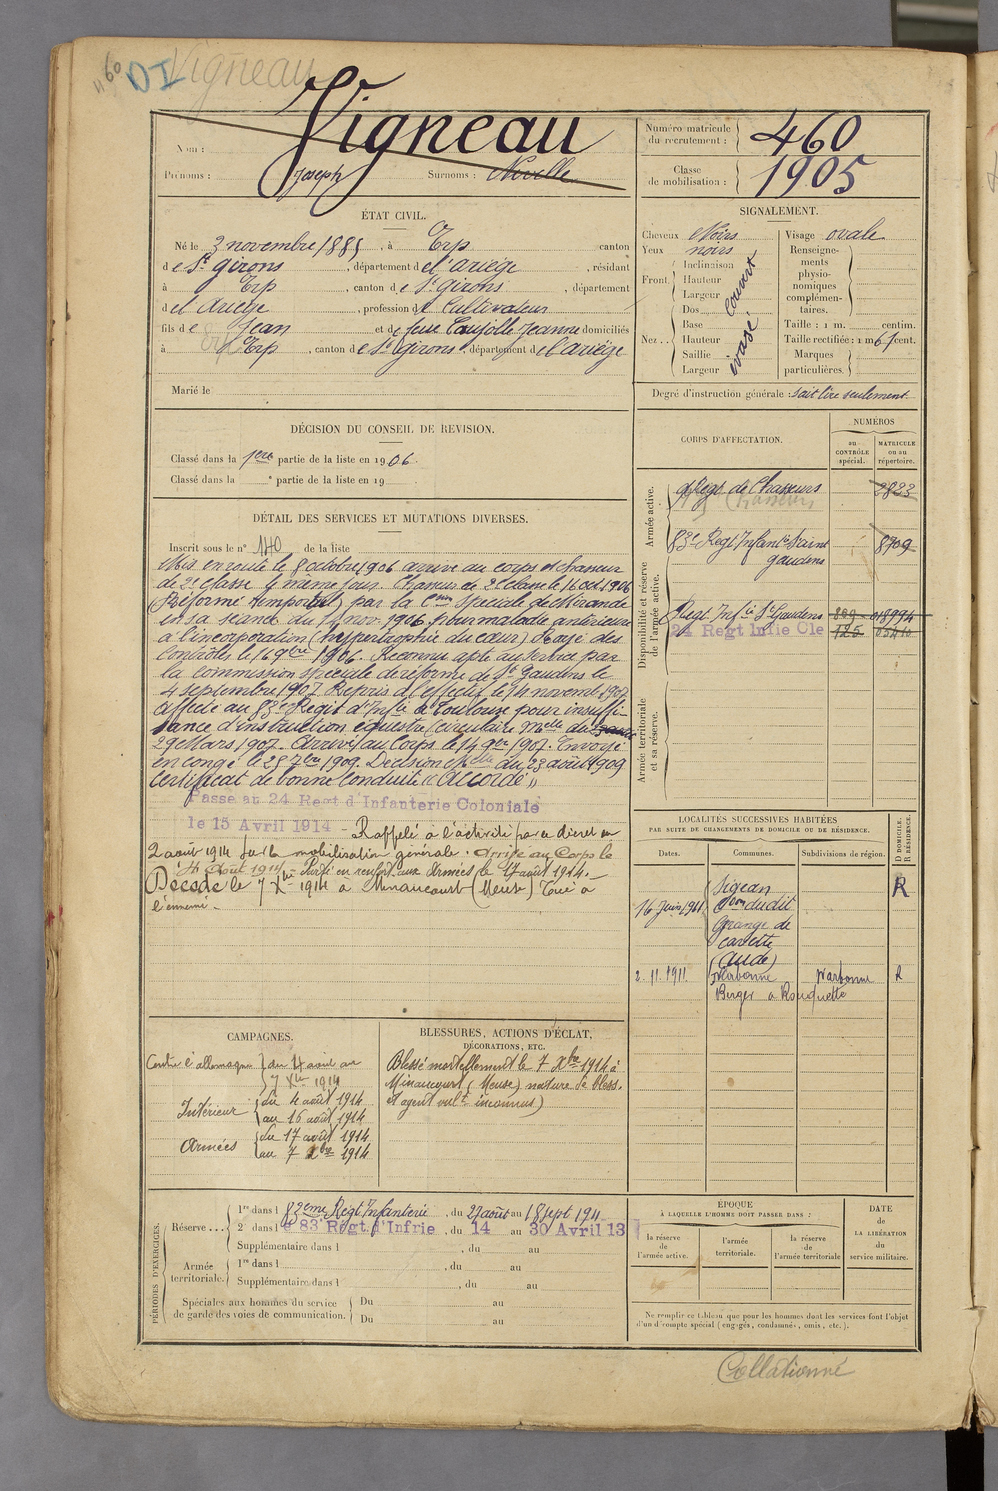 "60 DI Vigneau
Nom : Vigneau
Prénoms : Joseph Surnoms :
Numéro matricule du recrutement : 460
Classe de mobilisation : 1905
ÉTAT CIVIL.
Né le 3 novembre 1885, à Erp canton
de St girons, département de l'ariège, résidant
à Erp, canton de St girons, département
de l'Ariège, profession de Cultivateur
fils de Jean et de feue Caujolle Jeanne domiciliés
à Erp, canton de St girons, département de l'ariège
Marié le
SIGNALEMENT.
Cheveux Noirs
Yeux noirs
Front. Inclinaison Hauteur Largeur couvert
Nez.. Dos Base Hauteur Saillie Largeur évasé
Visage ovale
Renseignements physionomiques complémentaires.
Taille : 1 m. centim.
Taille rectifiée : 1 m 67 cent.
Marques particulières.
Degré d'instruction générale : sait lire seulement.
DÉCISION DU CONSEIL DE REVISION.
Classé dans la 1ère partie de la liste en 1906.
Classé dans la e partie de la liste en 19
CORPS D'AFFECTATION.
NUMÉROS
au CONTRÔLE spécial.
MATRICULE ou au répertoire.
Armée active.
Regt de Chasseurs 2833
83e Regt Infanie Saint gaudens 8709
Disponibilité et réserve de l'armée active.
Regt Infie St Gaudens
24 Regt Infie Cle
Armée territoriale et sa réserve.
DÉTAIL DES SERVICES ET MUTATIONS DIVERSES.
Inscrit sous le n° 140 de la liste
Mis en route le 8 octobre 1906 arrivé au corps et chasseur
de 2e classe le même jour. Chasseur de 2e classe le 16 oct. 1906
(Réformé temporat) par la Comon spéciale de Mirande
en sa séance du 12 nov. 1906 pour maladie antérieure
à l'incorporation (hypertrophie du cœur) Rayé des
contrôles le 16 9bre 1906. Reconnu apte au service par
la commission spéciale de réforme de St Gaudens le
4 septembre 1907 Repris à l'effectif le 14 novemb. 1907
affecté au 83e Regit d'Infie à Toulouse pour insuffi-
sance d'instruction équestre (circulaire Melle du
29 Mars 1907. Arrivé au Corps le 14 9bre 1907. Envoyé
en congé le 25 7bre 1909. Décision Melle du 23 août 1909
Certificat de bonne Conduite "Accordé"
Passé au 24 Regt d'Infanterie Coloniale
le 15 Avril 1914 - Rappelé à l'activité par ce décret du
2 août 1914 sur la mobilisation générale. Arrivé au Corps le
4 Août 1914 Parti en renfort aux Armées le 17 août 1914.
Décédé le 7 Xbre 1914 à Minaucourt (Meuse) Tué à
l'ennemi.-
LOCALITÉS SUCCESSIVES HABITÉES
PAR SUITE DE CHANGEMENTS DE DOMICILE OU DE RÉSIDENCE.
Dates. Communes. Subdivisions de région. D DOMICILE. R RÉSIDENCE.
16 Juin 1911 Sigean dom dudit Grange de cavette (Aude) R
2.11.1911 Narbonne Narbonne R
Berger à Rouquette
CAMPAGNES.
Contre l'allemagne du 4 août au
7 Xbre 1914
Intérieur du 4 août 1914
au 16 août 1914
Armées du 17 août 1914
au 7 Xbre 1914
BLESSURES, ACTIONS D'ÉCLAT,
DÉCORATIONS, ETC.
Blessé mortellement le 7 Xbre 1914 à
Minaucourt (Meuse) nature de bless.
et agent vult inconnus)
PÉRIODES D'EXERCICES.
Réserve... 1re dans l 83eme Regt Infanterie, du 27 août au 18 sept 1911
2e dans l e 83 Regt d'Infrie, du 14 au 30 Avril 13
Supplémentaire dans l , du au
Armée territoriale. 1re dans l , du au
Supplémentaire dans l , du au
Spéciales aux hommes du service de garde des voies de communication. Du au
Du au
ÉPOQUE
À LAQUELLE L'HOMME DOIT PASSER DANS :
la réserve de l'armée active.
l'armée territoriale.
la réserve de l'armée territoriale
DATE DE LA LIBÉRATION du service militaire.
Ne remplir ce tableau que pour les hommes dont les services font l'objet
d'un décompte spécial (engagés, condamnés, omis, etc.).
Collationné